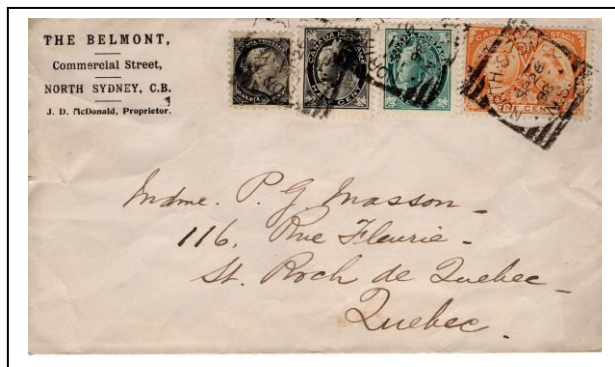 THE BELMONT,
Commercial Street,
NORTH SYDNEY, C.B.
J. D. McDonald, Proprietor.
CANADA POSTAGE
Mdme. P. G. Masson -
116, Rue Fleurie -
St. Roch de Quebec -
Quebec.